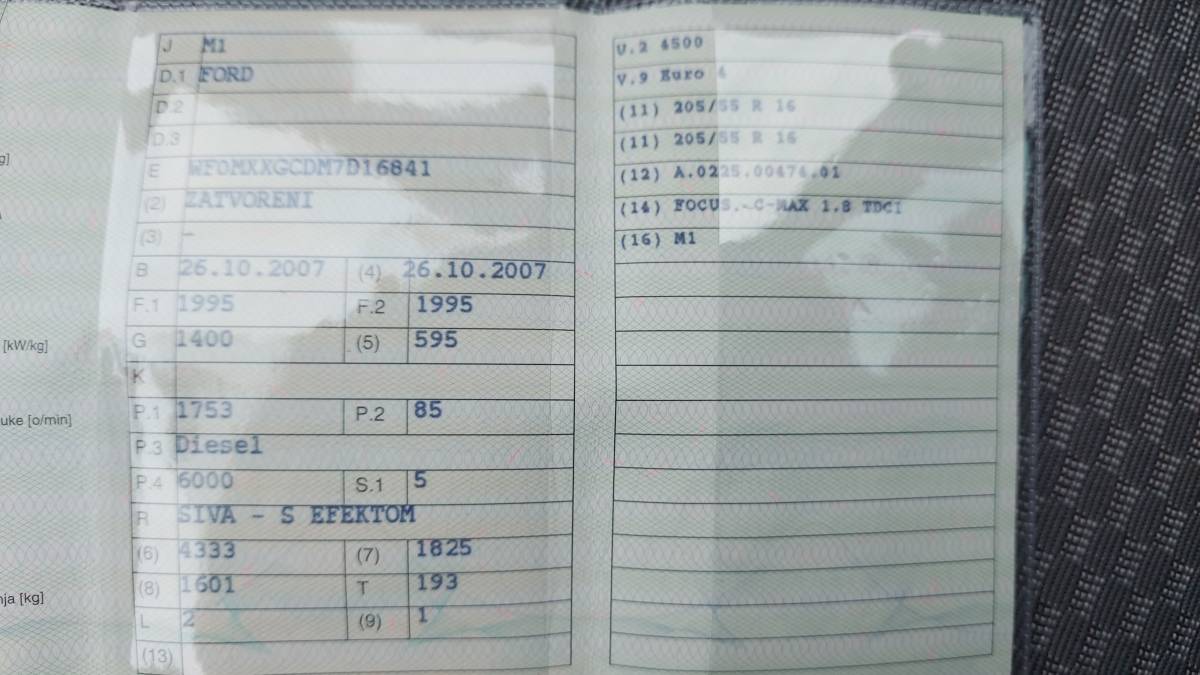 g]
[kW/kg]
uke [o/min]
nja [kg]
J M1
D.1 FORD
D.2
D.3
E WF0MXXGCDM7D16841
(2) ZATVORENI
(3) -
B 26.10.2007 (4) 26.10.2007
F.1 1995 F.2 1995
G 1400 (5) 595
K
P.1 1753 P.2 85
P.3 Diesel
P.4 6000 S.1 5
R SIVA - S EFEKTOM
(6) 4333 (7) 1825
(8) 1601 T 193
L 2 (9) 1
(13)
U.2 4500
V.9 Euro 4
(11) 205/55 R 16
(11) 205/55 R 16
(12) A.0225.00474.01
(14) FOCUS.-C-MAX 1.8 TDCI
(16) M1